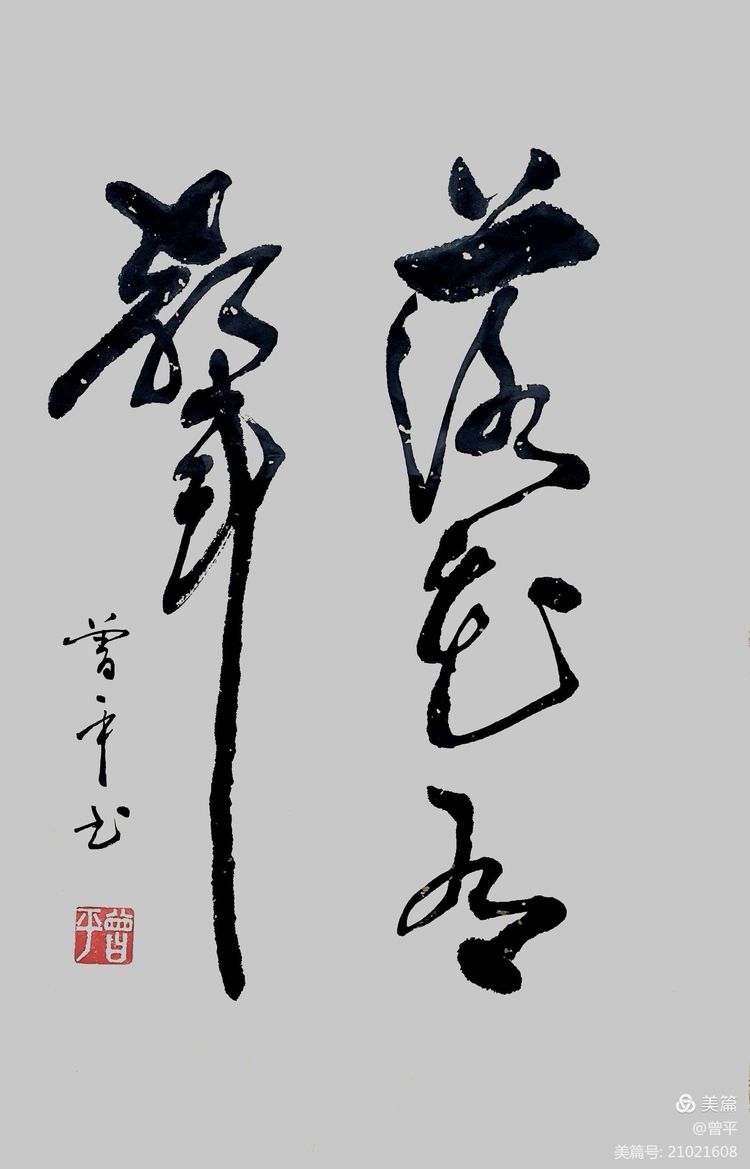 落花有
聲
曾平书
曾平
美篇
@曾平
美篇号: 21021608